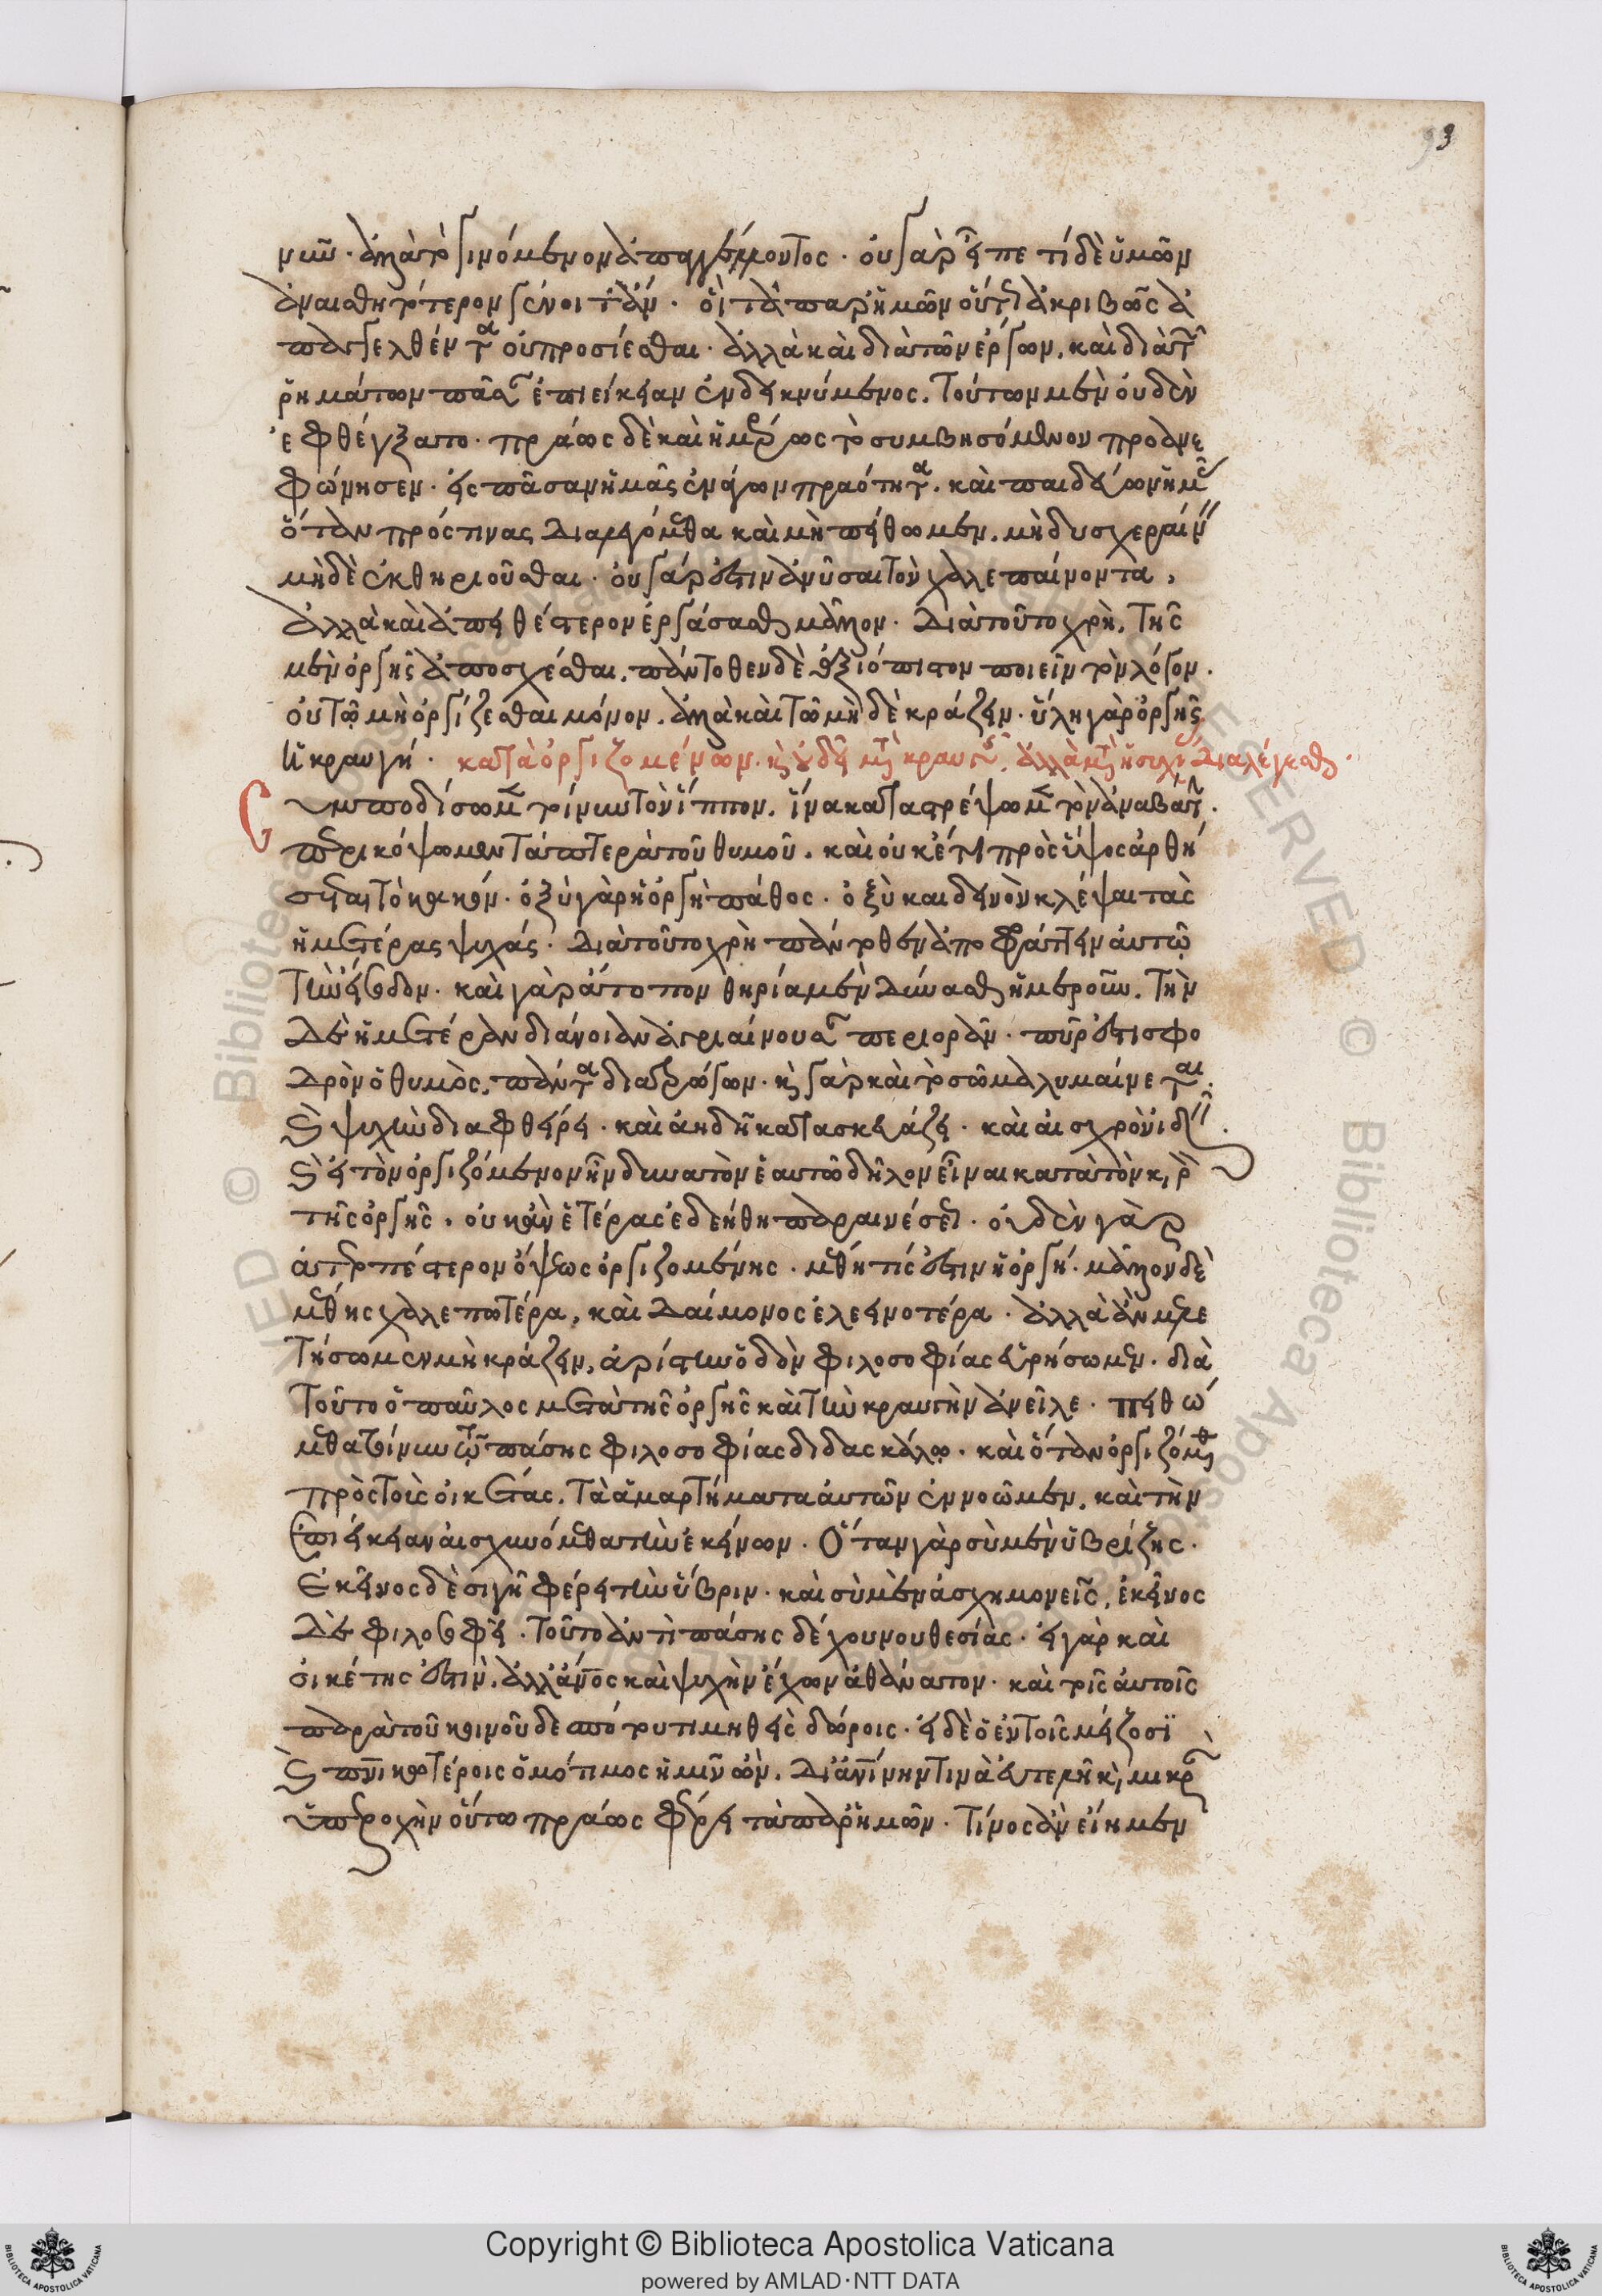 93
νυν· ἀλλὰ τὸ γινόμενον ἀπαγγέλλοντος· οὐ γὰρ εἶπε τί δὲ ὑμῶν
ἀναισθητότερον γένοιτ' ἄν· οἳ τὰ παρ' ἡμῶν οὕτως ἀκριβῶς ἀ
παγγελθέντα οὐ προσίεσθαι· ἀλλὰ καὶ διὰ τῶν ἔργων, καὶ διὰ τῶν
ῥημάτων πᾶσαν ἐπιείκειαν ἐνδεικνύμενος, τούτων μὲν οὐδὲν
ἐφθέγξατο· πράως δὲ καὶ ἡμέρως τὸ συμβησόμενον προανε
φώνησεν· εἰς πᾶσαν ἡμᾶς ἐνάγων πραότητα, καὶ παιδεύων ἡμᾶς
ὅταν πρός τινας διαλεγόμεθα καὶ μὴ πείθωμεν, μὴ δυσχεραίνειν
μηδὲ ἐκθηριοῦσθαι· οὐ γάρ ἐστιν ἀνῦσαι τὸν χαλεπαίνοντα,
ἀλλὰ καὶ ἀπειθέστερον ἐργάσασθαι μᾶλλον· διὰ τοῦτο χρὴ, τῆς
μὲν ὀργῆς ἀποσχέσθαι, πάντοθεν δὲ ἀξιόπιστον ποιεῖν τὸν λόγον·
οὐ τῷ μὴ ὀργίζεσθαι μόνον, ἀλλὰ καὶ τῷ μηδὲ κράζειν· ὕλη γὰρ ὀργῆς
ἡ κραυγή· κατὰ ὀργιζομένων, καὶ οὐ δεῖ μετὰ κραυγῆς, ἀλλὰ μετὰ ἡσυχίας διαλέγεσθαι·
Συμποδίσωμεν τοίνυν τὸν ἵππον, ἵνα καταστρέψωμεν τὸν ἀναβάτην·
περικόψωμεν τὰ πτερὰ τοῦ θυμοῦ, καὶ οὐκέτι πρὸς ὕψος ἀρθή
σεται τὸ κακόν· ὀξὺ γὰρ ἡ ὀργὴ πάθος· ὀξὺ καὶ δεινὸν κλέψαι τὰς
ἡμετέρας ψυχάς· διὰ τοῦτο χρὴ πάντοθεν ἀποφράττειν αὐτῷ
τὴν εἴσοδον· καὶ γὰρ ἄτοπον θηρία μὲν δύνασθαι ἡμεροῦν, τὴν
δὲ ἡμετέραν διάνοιαν ἀγριαίνουσαν περιορᾶν· πῦρ ἐστι σφο
δρὸν ὁ θυμὸς, πάντα διατρώγων· καὶ γὰρ καὶ τὸ σῶμα λυμαίνεται·
καὶ ψυχὴν διαφθείρει· καὶ ἀηδῆ κατασκευάζει· καὶ αἰσχρὸν ἰδεῖν·
καὶ εἰ τὸν ὀργιζόμενον ἦν δυνατὸν ἑαυτῷ δῆλον εἶναι κατὰ τὸν καιρὸν
τῆς ὀργῆς, οὐκ ἂν ἑτέρας ἐδεήθη παραινέσεως· οὐδὲν γὰρ
ἀτερπέστερον ὄψεως ὀργιζομένης· μέθη τίς ἐστιν ἡ ὀργή· μᾶλλον δὲ
μέθης χαλεπωτέρα, καὶ δαίμονος ἐλεεινοτέρα· ἀλλὰ ἂν μελε
τήσωμεν μὴ κράζειν, ἀρίστην ὁδὸν φιλοσοφίας εὑρήσωμεν· διὰ
τοῦτο ὁ παῦλος μετὰ τῆς ὀργῆς καὶ τὴν κραυγὴν ἀνεῖλε· πειθώ
μεθα τοίνυν τῷ πάσης φιλοσοφίας διδασκάλῳ· καὶ ὅταν ὀργιζόμεθα
πρὸς τοὺς οἰκέτας, τὰ ἁμαρτήματα αὐτῶν ἐννοῶμεν, καὶ τὴν
ἐπιείκειαν αἰσχυνόμεθα τὴν ἐκείνων· Ὅταν γὰρ σὺ μὲν ὑβρίζῃς·
ἐκεῖνος δὲ σιγῇ φέρει τὴν ὕβριν· καὶ σὺ μὲν ἀσχημονεῖς, ἐκεῖνος
δὲ φιλοσοφεῖ· τοῦτο ἀντὶ πάσης δέχου νουθεσίας· εἰ γὰρ καὶ
οἰκέτης ἐστὶν, ἀλλ' ἄνος καὶ ψυχὴν ἔχων ἀθάνατον· καὶ τοῖς αὐτοῖς
παρὰ τοῦ κοινοῦ δεσπότου τιμηθεὶς δώροις· εἰ δὲ ὁ ἐν τοῖς μείζοσι
καὶ πνικωτέροις ὁμότιμος ἡμῖν ὢν, δι' ἀνίνην τινὰ εὐτελῆ καὶ μικρὰν
ὑπεροχὴν οὕτω πράως φέρει τὰ παρ' ἡμῶν· τίνος ἂν εἴημεν
Copyright © Biblioteca Apostolica Vaticana
powered by AMLAD·NTT DATA